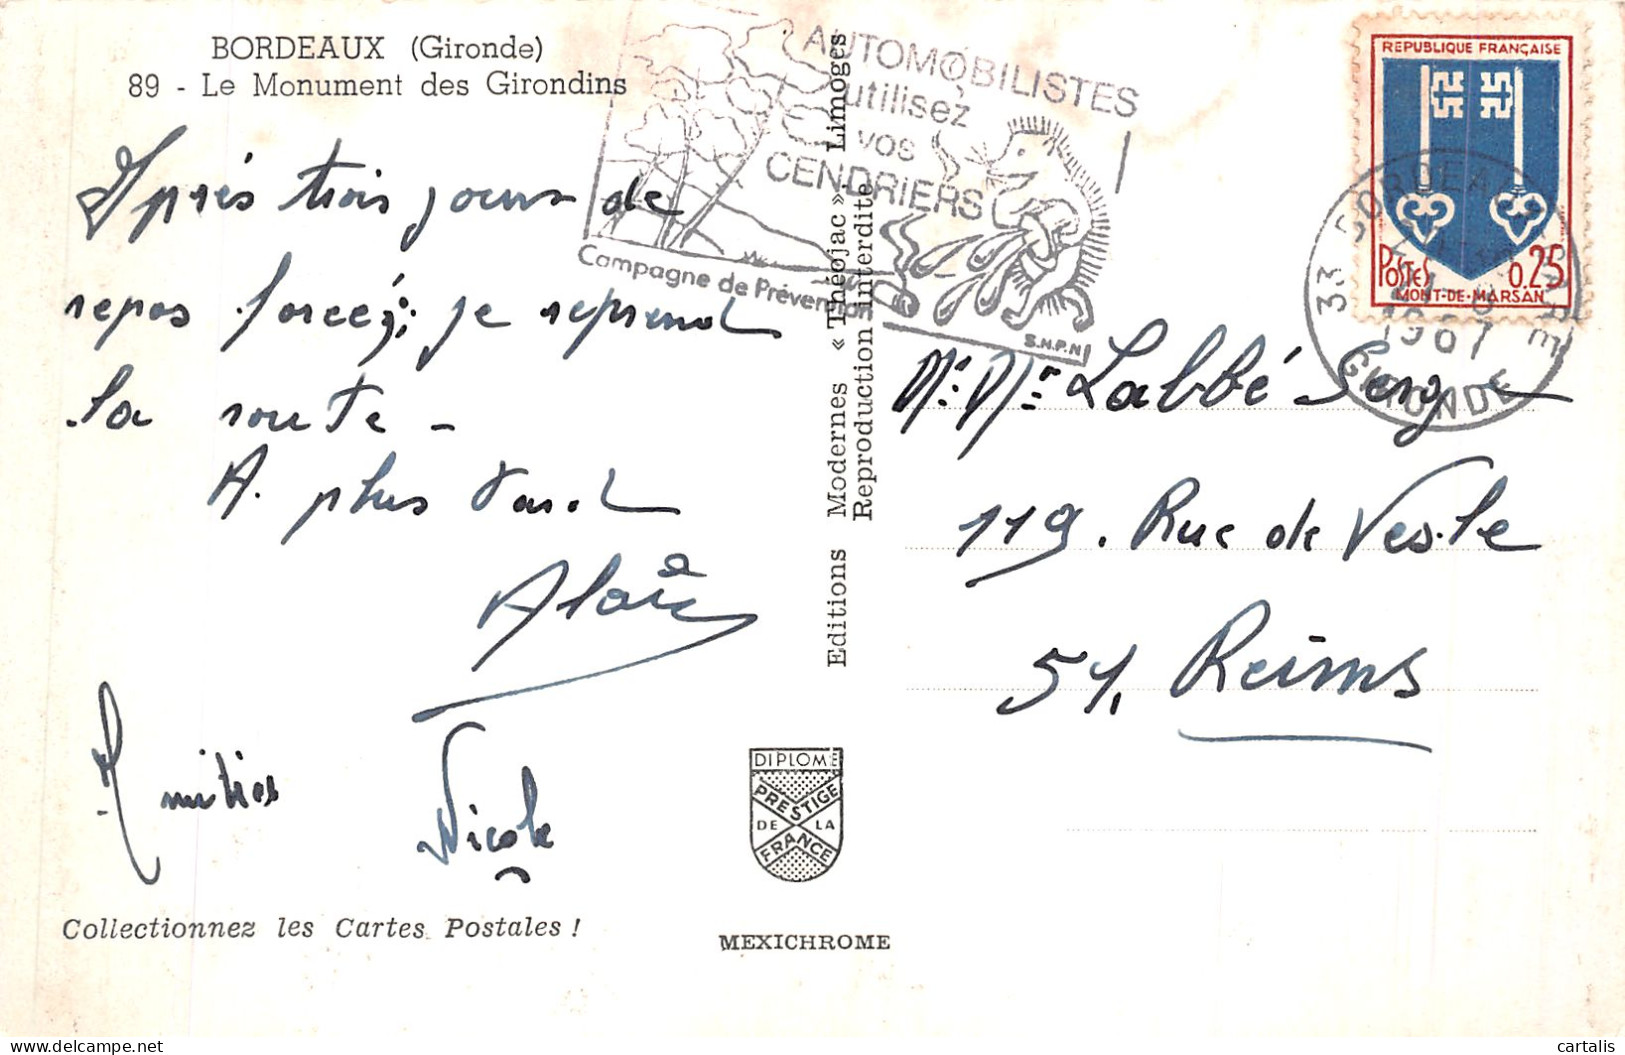 BORDEAUX (Gironde)
89 - Le Monument des Girondins
Après trois jours de
repos forcés; je reprend
la route -
A. plus tard
Alain
Amitiés
Nicole
Collectionnez les Cartes Postales !
Editions Modernes « Théojac » Limoges
Reproduction interdite
DIPLOME
PRESTIGE
DE LA
FRANCE
MEXICHROME
AUTOMOBILISTES
utilisez
vos
CENDRIERS
Campagne de Prévention
S.N.P.N
REPUBLIQUE FRANÇAISE
POSTES 0.25
MONT-DE-MARSAN
33 BORDEAUX
1967
GIRONDE
Labbé Serge
119. Rue de Vesle
51. Reims
cartalis